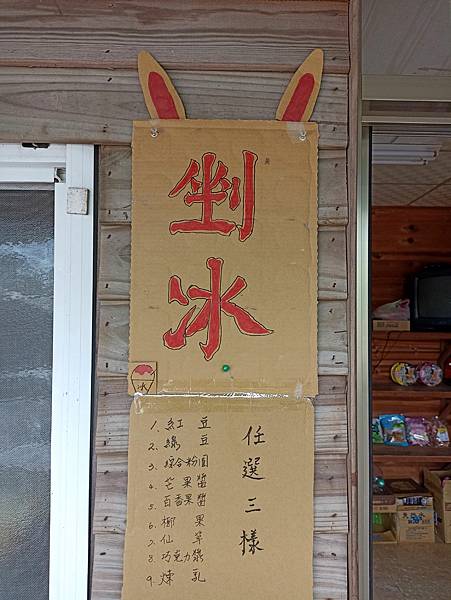 剉
冰
冰
任選三樣
1. 紅豆
2. 綠豆
3. 綜合粉圓
4. 芒果醬
5. 百香果醬
6. 椰果
7. 仙草
8. 巧克力漿
9. 煉乳